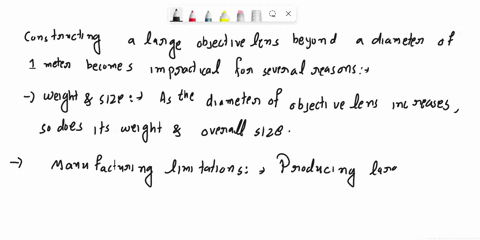 Constructing a large objective lens beyond a diameter of
1 meter becomes impractical for several reasons:→
→) weight & size:→ As the diameter of objective lens increases,
so does its weight & overall size.
→) Manufacturing limitations:→ Producing lar